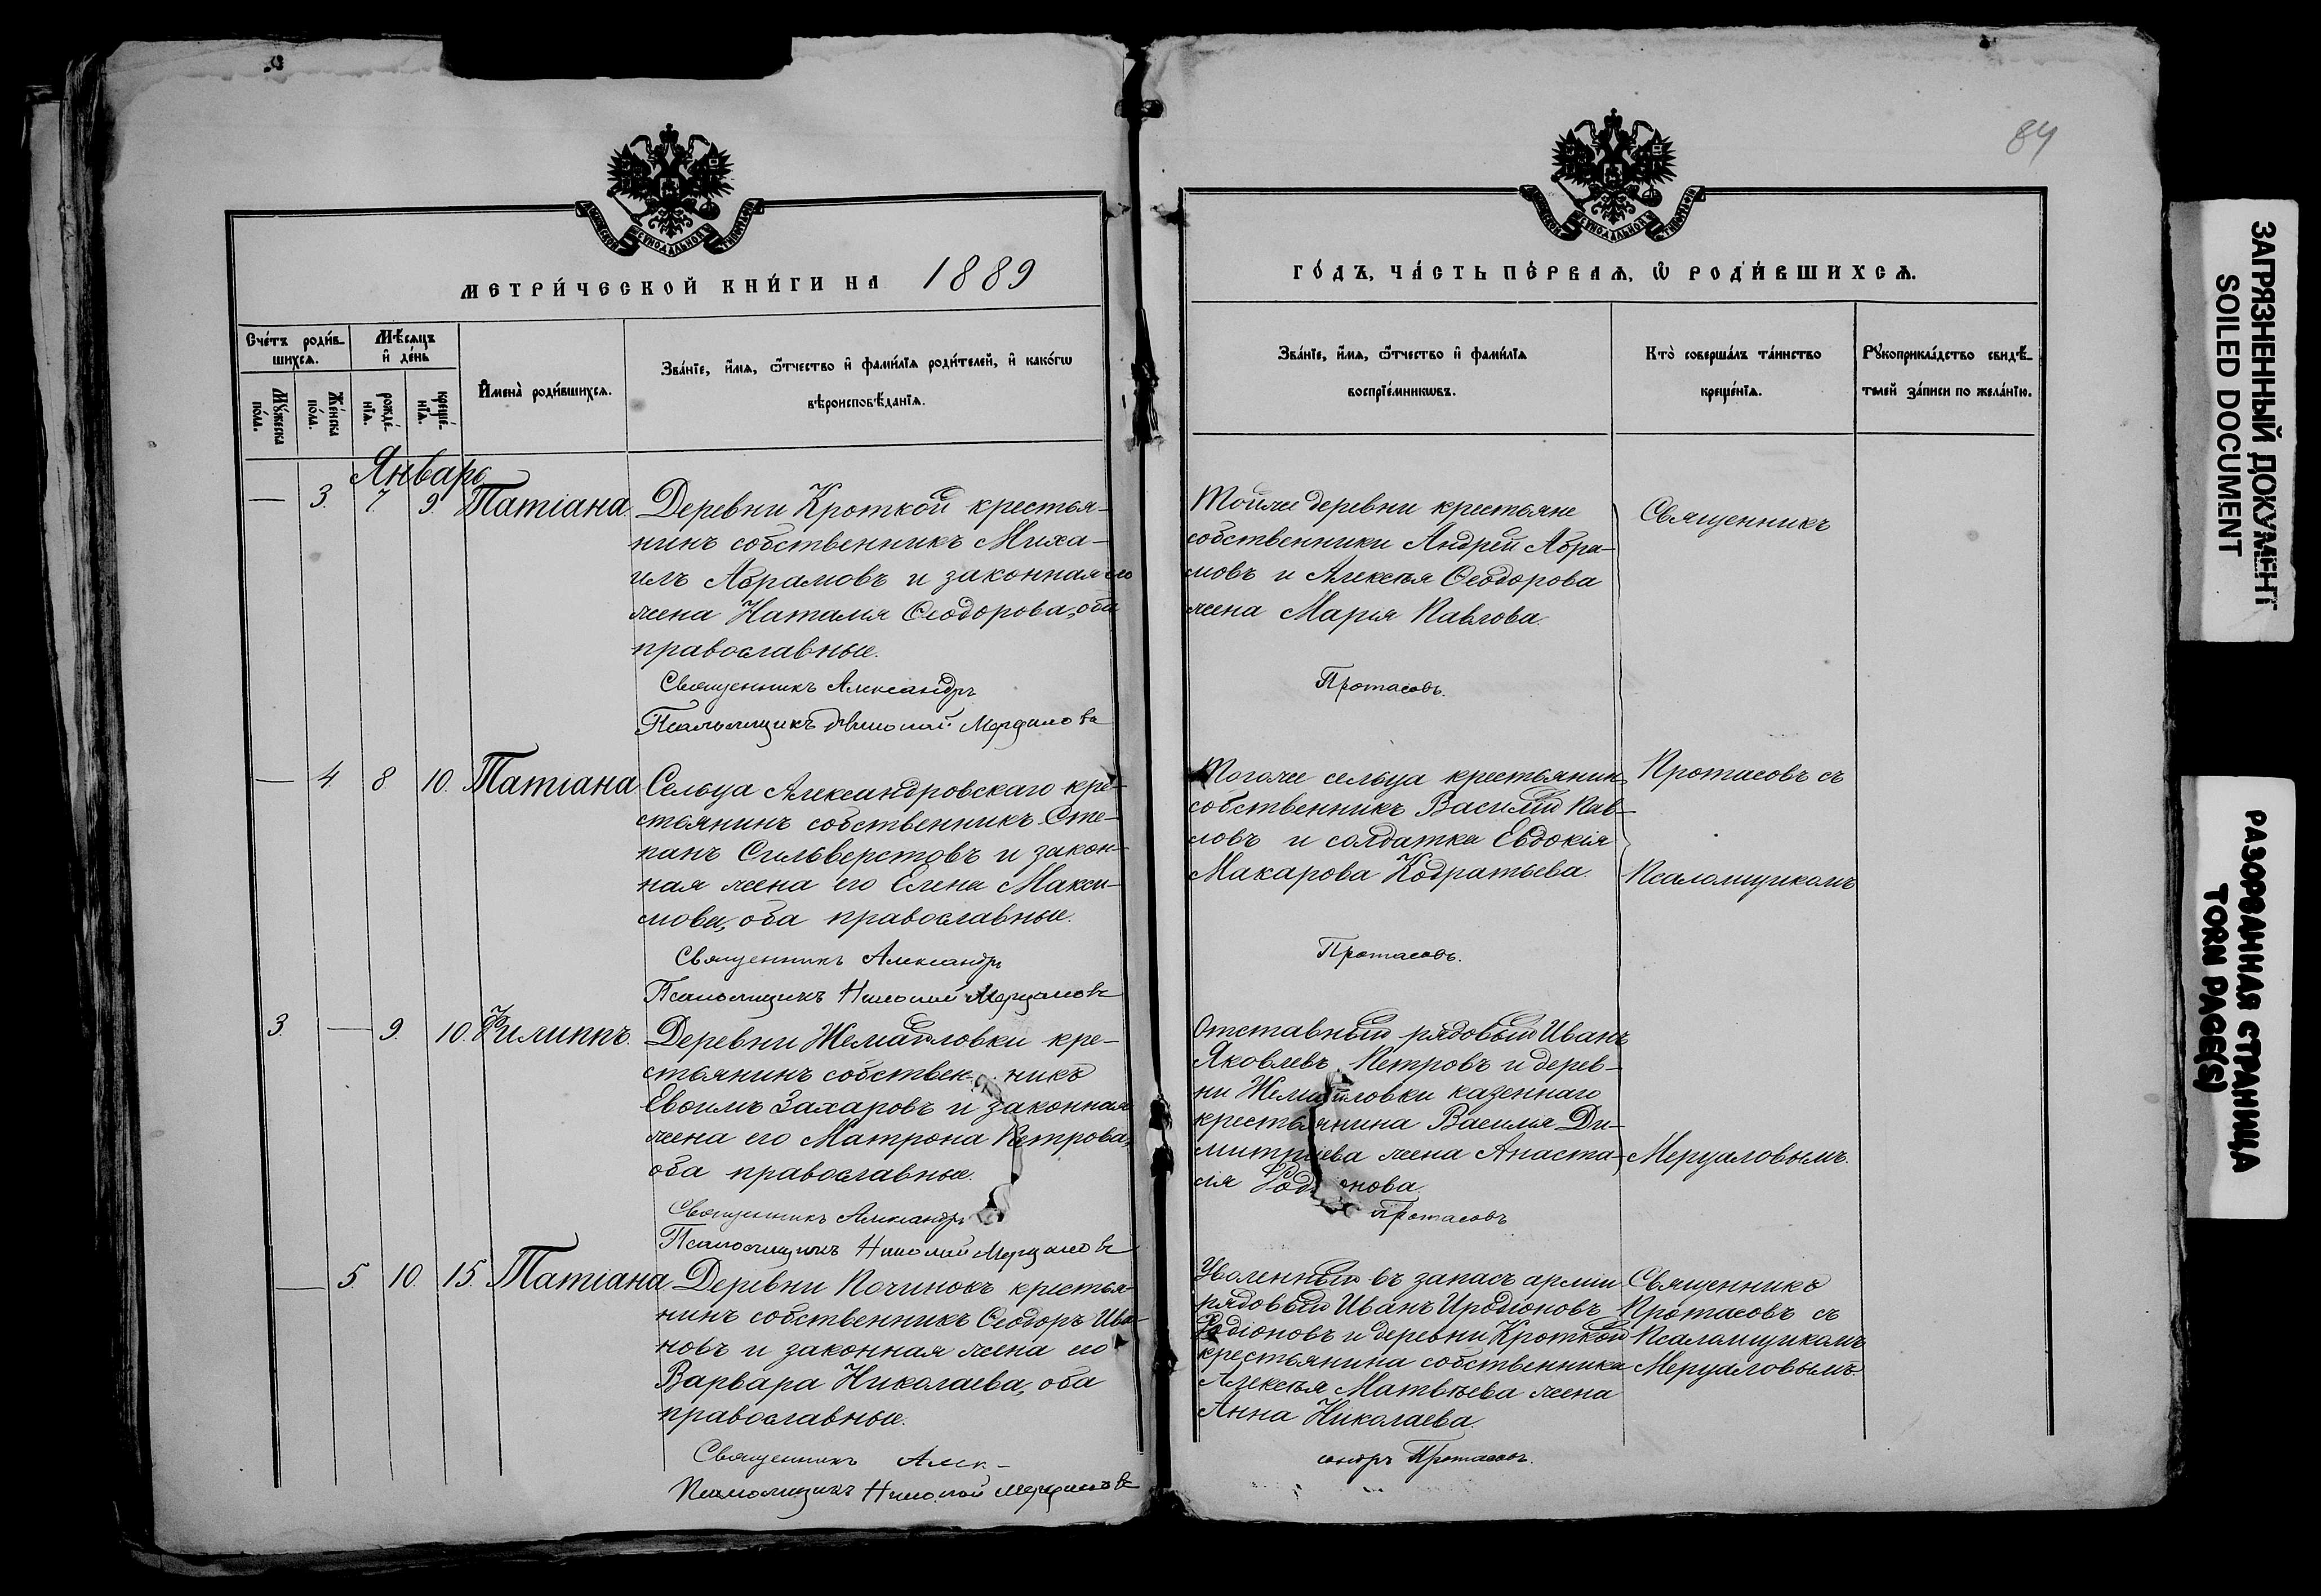 84
МЕТРИ́ЧЕСКОЙ КНИ́ГИ НА 1889
ГО́ДЪ, ЧА́СТЬ ПЕ́РВАЯ, Ѡ РОДИ́ВШИХСЯ.
Сче́тъ роди́в-
шихся.
Мꙋ́жеска
по́ла.
Же́нска
по́ла.
Мѣ́сяцъ
и де́нь
рожде́-
нїя.
креще́-
нїя.
Имена̀ роди́вшихся.
Зва́нїе, и́мя, ѻ́тчество и фами́лїя роди́телей, и како́гѡ
вѣроисповѣ́данїя.
Зва́нїе, и́мя, ѻ́тчество и фами́лїя
воспрїе́мникѡвъ.
Кто̀ соверша́лъ та́инство
креще́нїя.
Рꙋкоприкла́дство свидѣ́-
телей за́писи по жела́нїю.
Январь
— 3. 7 9. Татіана.
Деревни Кроткой крестья-
нинъ собственникъ Миха-
илъ Абрамовъ и законная его
жена Наталія Ѳеодорова, оба
православные.
Священникъ Александръ
Псаломщикъ Николай Мерцаловъ
Тойже деревни крестьяне
собственники Андрей Абра-
мовъ и Алексѣя Ѳеодорова
жена Марія Павлова.
Протасовъ.
Священникъ
— 4. 8 10. Татіана
Сельца Александровскаго кре-
стьянинъ собственникъ Сте-
панъ Сильверстовъ и закон-
ная жена его Елена Макси-
мова, оба православные.
Священникъ Александръ
Псаломщикъ Николай Мерцаловъ
Тогоже сельца крестьянин
собственникъ Василій Пав-
ловъ и солдатка Евдокія
Макарова Кодратьева.
Протасовъ.
Протасовъ съ
Псаломщикомъ
3 — 9. 10. Филиппъ.
Деревни кре-
стьянинъ собствен- никъ
Евѳимъ Захаровъ и законная
жена его Матрона Петрова,
оба православные.
Священникъ Александръ
Псаломщикъ Николай Мерцаловъ
Отставный рядовый Иванъ
Яковлевъ Петровъ и дерев-
ни казеннаго
крестьянина Василія Ди-
митріева жена Анаста-
сія Родіонова
Протасовъ
Мерцаловымъ.
— 5. 10. 15. Татіана.
Деревни Починокъ крестья-
нинъ собственникъ Ѳеодоръ Ива-
новъ и законная жена его
Варвара Николаева, оба
православные.
Священникъ Алек-
Псаломщикъ Николай Мерцаловъ
Уволенный въ запасъ арміи
рядовый Иванъ Иродіоновъ
Родіоновъ и деревни Кроткой
крестьянина собственника
Алексѣя Матвѣева жена
Анна Николаева.
сандръ Протасовъ.
Священникъ
Протасовъ съ
Псаломщикомъ
Мерцаловымъ.
ЗАГРЯЗНЕННЫЙ ДОКУМЕНТ
SOILED DOCUMENT
РАЗОРВАННАЯ СТРАНИЦА
TORN PAGE(S)